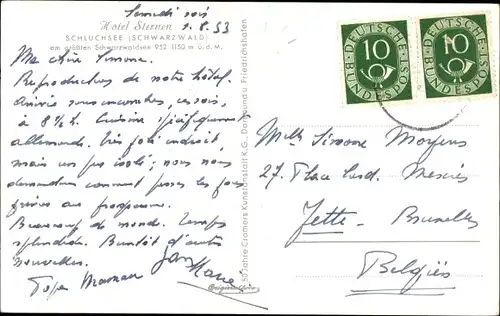 Samedi soir
1.8.53
Hotel Sternen
SCHLUCHSEE (SCHWARZWALD)
am größten Schwarzwaldsee 952-1150 m ü.d.M.
Ma chère Simone.
Reproduction de notre hôtel.
Arrivée sans encombres, ce soir,
à 8 ½ h. Cuisine spécifiquement
allemande. Très joli endroit,
mais un peu isolé; nous nous
demandons comment passer les
prévues au programme.
Beaucoup de monde. Temps
splendide. Bientôt d'autres
nouvelles.
Papa Maman
50 Jahre Cramers Kunstanstalt K.G., Dortmund u. Friedrichshafen
DEUTSCHE BUNDESPOST
10
DEUTSCHE BUNDESPOST
10
Melle Simone Moyens
27. Place Card. Mercier
Jette - Bruxelles
Belgien